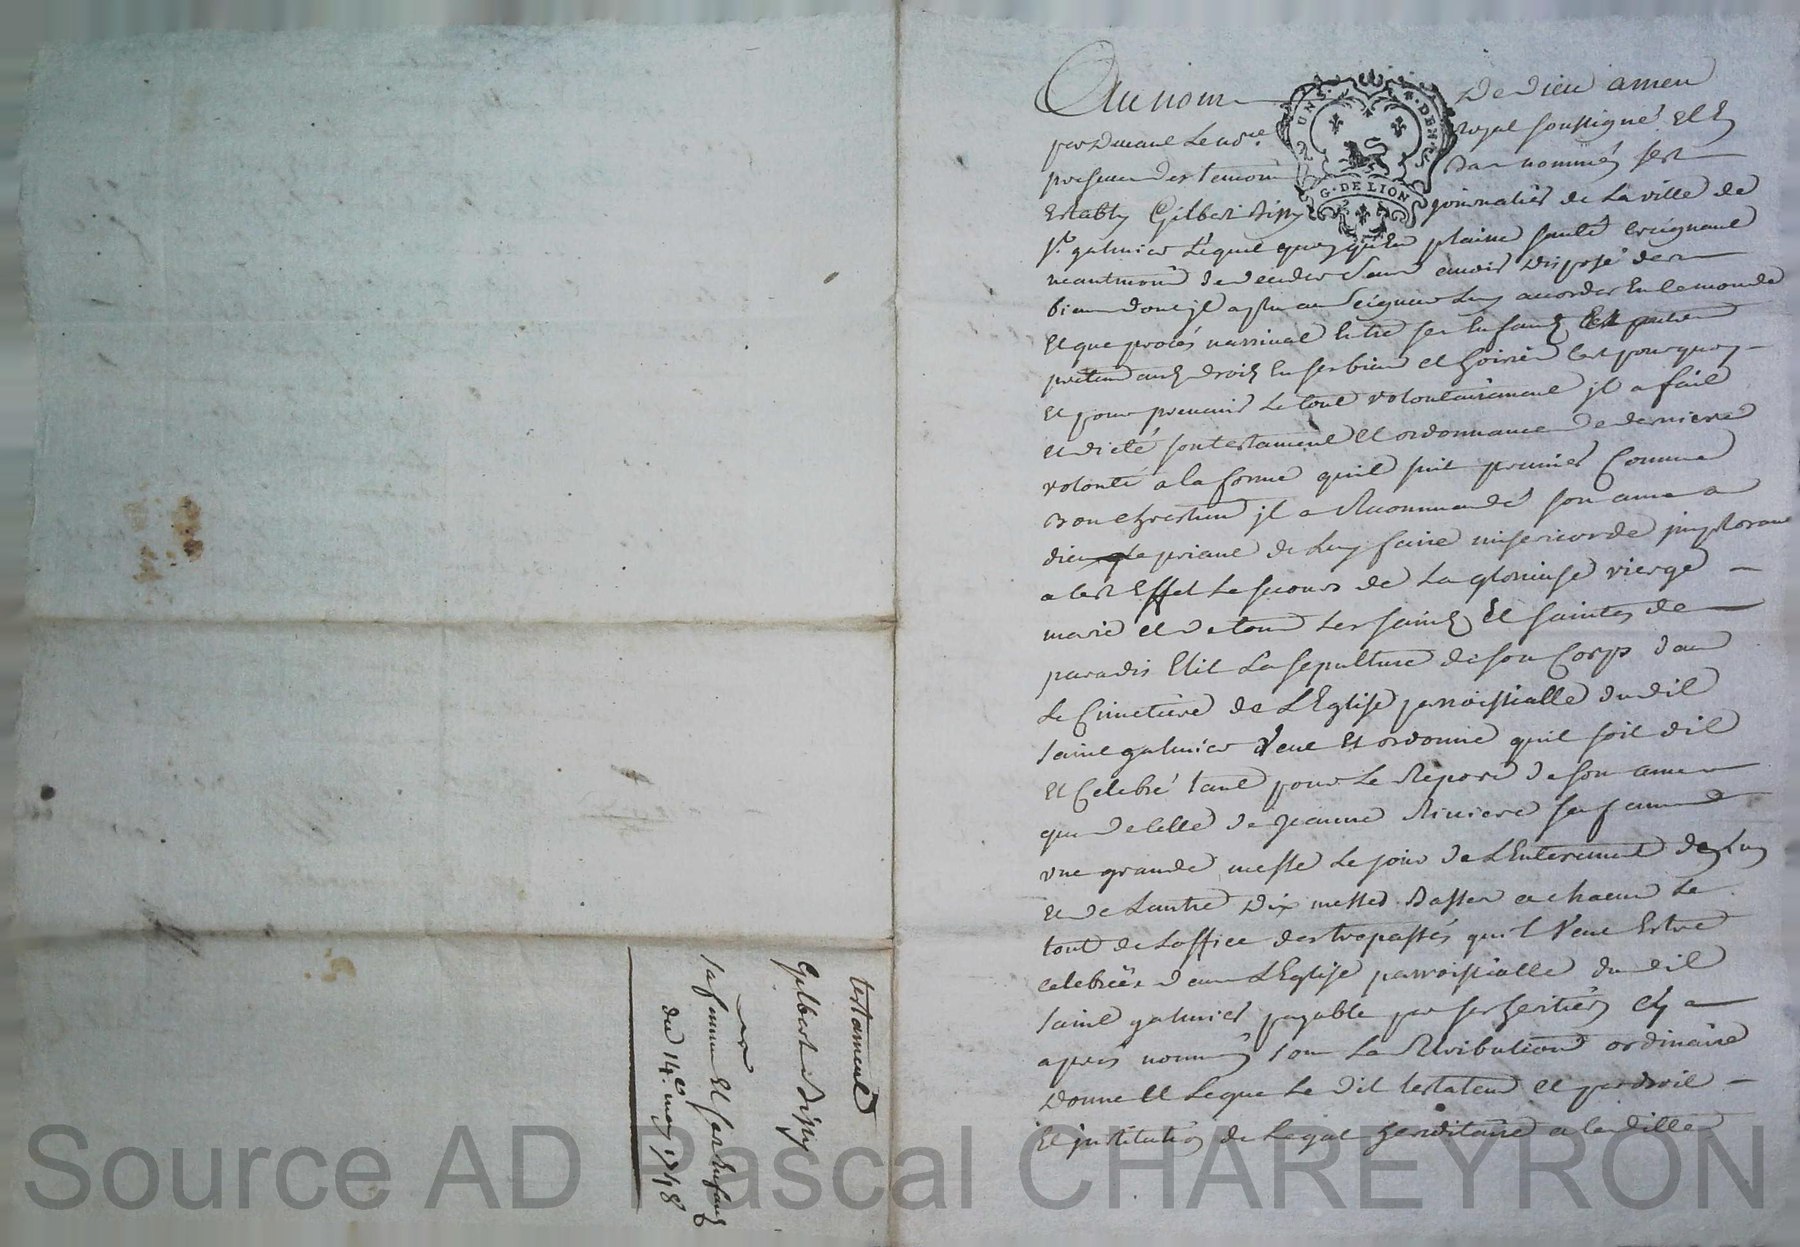 testament
Gilbert
sa femme Et ses Enfans
du 14e. may 1748
Au nom De Dieu amen
par Devant Le no.re Royal soussigné Et En
presence Des temoins Bas nommés s'est
Estably Gilbert journalier de La ville de
st. galmier Lequel quoyqu'En plaine santé creignant
neantmoins de deceder sans avoir Disposé de ses
biens dont jl a plu au seigneur Luy accorder En le monde
Et que procés naissent Entre ses Enfans Et autres
pretendants droits En ses biens et hoirie C'est pourquoy
Et pour prevenir Le tout volontairement jl a fait
et dicté son testament Et ordonnance De derniere
volonté a la forme qu'il suit premier Comme
Bon Chrestien jl a Recommandé son ame a
dieu Le priant de Luy faire misericorde jmplorant
a Cest Effet Le secours de La glorieuse vierge
marie et De tous Les saints Et saintes de
paradis Elit La sepulture de son Corps dans
Le Cimetiere de L'Eglise parroissialle du dit
saint galmier Veut Et ordonne qu'il soit dit
Et Celebré tant pour Le Repos De son ame
que de Celle de Jeanne Riviere sa femme
vne grande messe Le jour de L'Enterement De L'un
Et de L'autre Dix messes Basses a chacun Le
tout de L'office des trepassés qu'il Veut Estre
celebrées dans L'Eglise parroissialle du dit
saint galmier payable par ses heritiers Cy
apres nommés sous La Retribution ordinaire
Donne Et Legue Le Dit testateur Et par droit
Et jnstitution de Legat hereditaire a
G. DE LION
Source AD Pascal CHAREYRON